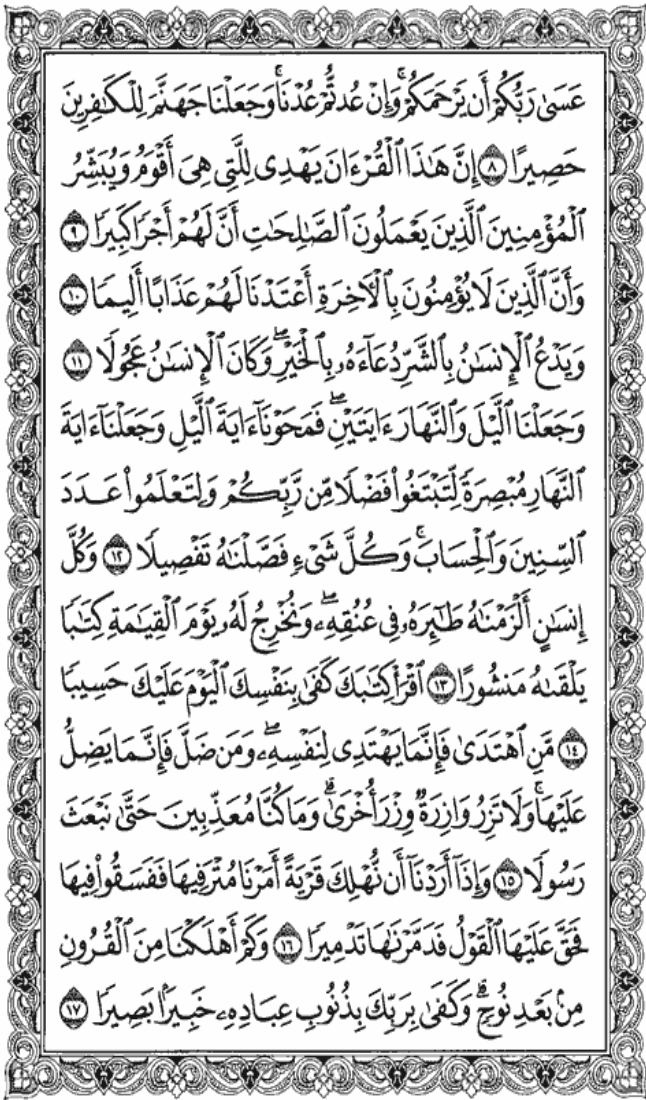 عَسَىٰ رَبُّكُمْ أَن يَرْحَمَكُمْ ۚ وَإِنْ عُدتُّمْ عُدْنَا ۚ وَجَعَلْنَا جَهَنَّمَ لِلْكَافِرِينَ
حَصِيرًا ٨ إِنَّ هَٰذَا الْقُرْءَانَ يَهْدِى لِلَّتِى هِىَ أَقْوَمُ وَيُبَشِّرُ
الْمُؤْمِنِينَ الَّذِينَ يَعْمَلُونَ الصَّالِحَاتِ أَنَّ لَهُمْ أَجْرًا كَبِيرًا ٩
وَأَنَّ الَّذِينَ لَا يُؤْمِنُونَ بِالْآخِرَةِ أَعْتَدْنَا لَهُمْ عَذَابًا أَلِيمًا ١٠
وَيَدْعُ الْإِنسَٰنُ بِالشَّرِّ دُعَآءَهُۥ بِالْخَيْرِ ۖ وَكَانَ الْإِنسَٰنُ عَجُولًا ١١
وَجَعَلْنَا الَّيْلَ وَالنَّهَارَ ءَايَتَيْنِ ۖ فَمَحَوْنَآ ءَايَةَ الَّيْلِ وَجَعَلْنَآ ءَايَةَ
النَّهَارِ مُبْصِرَةً لِّتَبْتَغُوا۟ فَضْلًا مِّن رَّبِّكُمْ وَلِتَعْلَمُوا۟ عَدَدَ
السِّنِينَ وَالْحِسَابَ ۚ وَكُلَّ شَىْءٍ فَصَّلْنَٰهُ تَفْصِيلًا ١٢ وَكُلَّ
إِنسَٰنٍ أَلْزَمْنَٰهُ طَٰٓئِرَهُۥ فِى عُنُقِهِۦ ۖ وَنُخْرِجُ لَهُۥ يَوْمَ الْقِيَٰمَةِ كِتَٰبًا
يَلْقَىٰهُ مَنشُورًا ١٣ اقْرَأْ كِتَٰبَكَ كَفَىٰ بِنَفْسِكَ الْيَوْمَ عَلَيْكَ حَسِيبًا
١٤ مَّنِ اهْتَدَىٰ فَإِنَّمَا يَهْتَدِى لِنَفْسِهِۦ ۖ وَمَن ضَلَّ فَإِنَّمَا يَضِلُّ
عَلَيْهَا ۚ وَلَا تَزِرُ وَازِرَةٌ وِزْرَ أُخْرَىٰ ۗ وَمَا كُنَّا مُعَذِّبِينَ حَتَّىٰ نَبْعَثَ
رَسُولًا ١٥ وَإِذَآ أَرَدْنَآ أَن نُّهْلِكَ قَرْيَةً أَمَرْنَا مُتْرَفِيهَا فَفَسَقُوا۟ فِيهَا
فَحَقَّ عَلَيْهَا الْقَوْلُ فَدَمَّرْنَٰهَا تَدْمِيرًا ١٦ وَكَمْ أَهْلَكْنَا مِنَ الْقُرُونِ
مِنۢ بَعْدِ نُوحٍ ۗ وَكَفَىٰ بِرَبِّكَ بِذُنُوبِ عِبَادِهِۦ خَبِيرًۢا بَصِيرًا ١٧